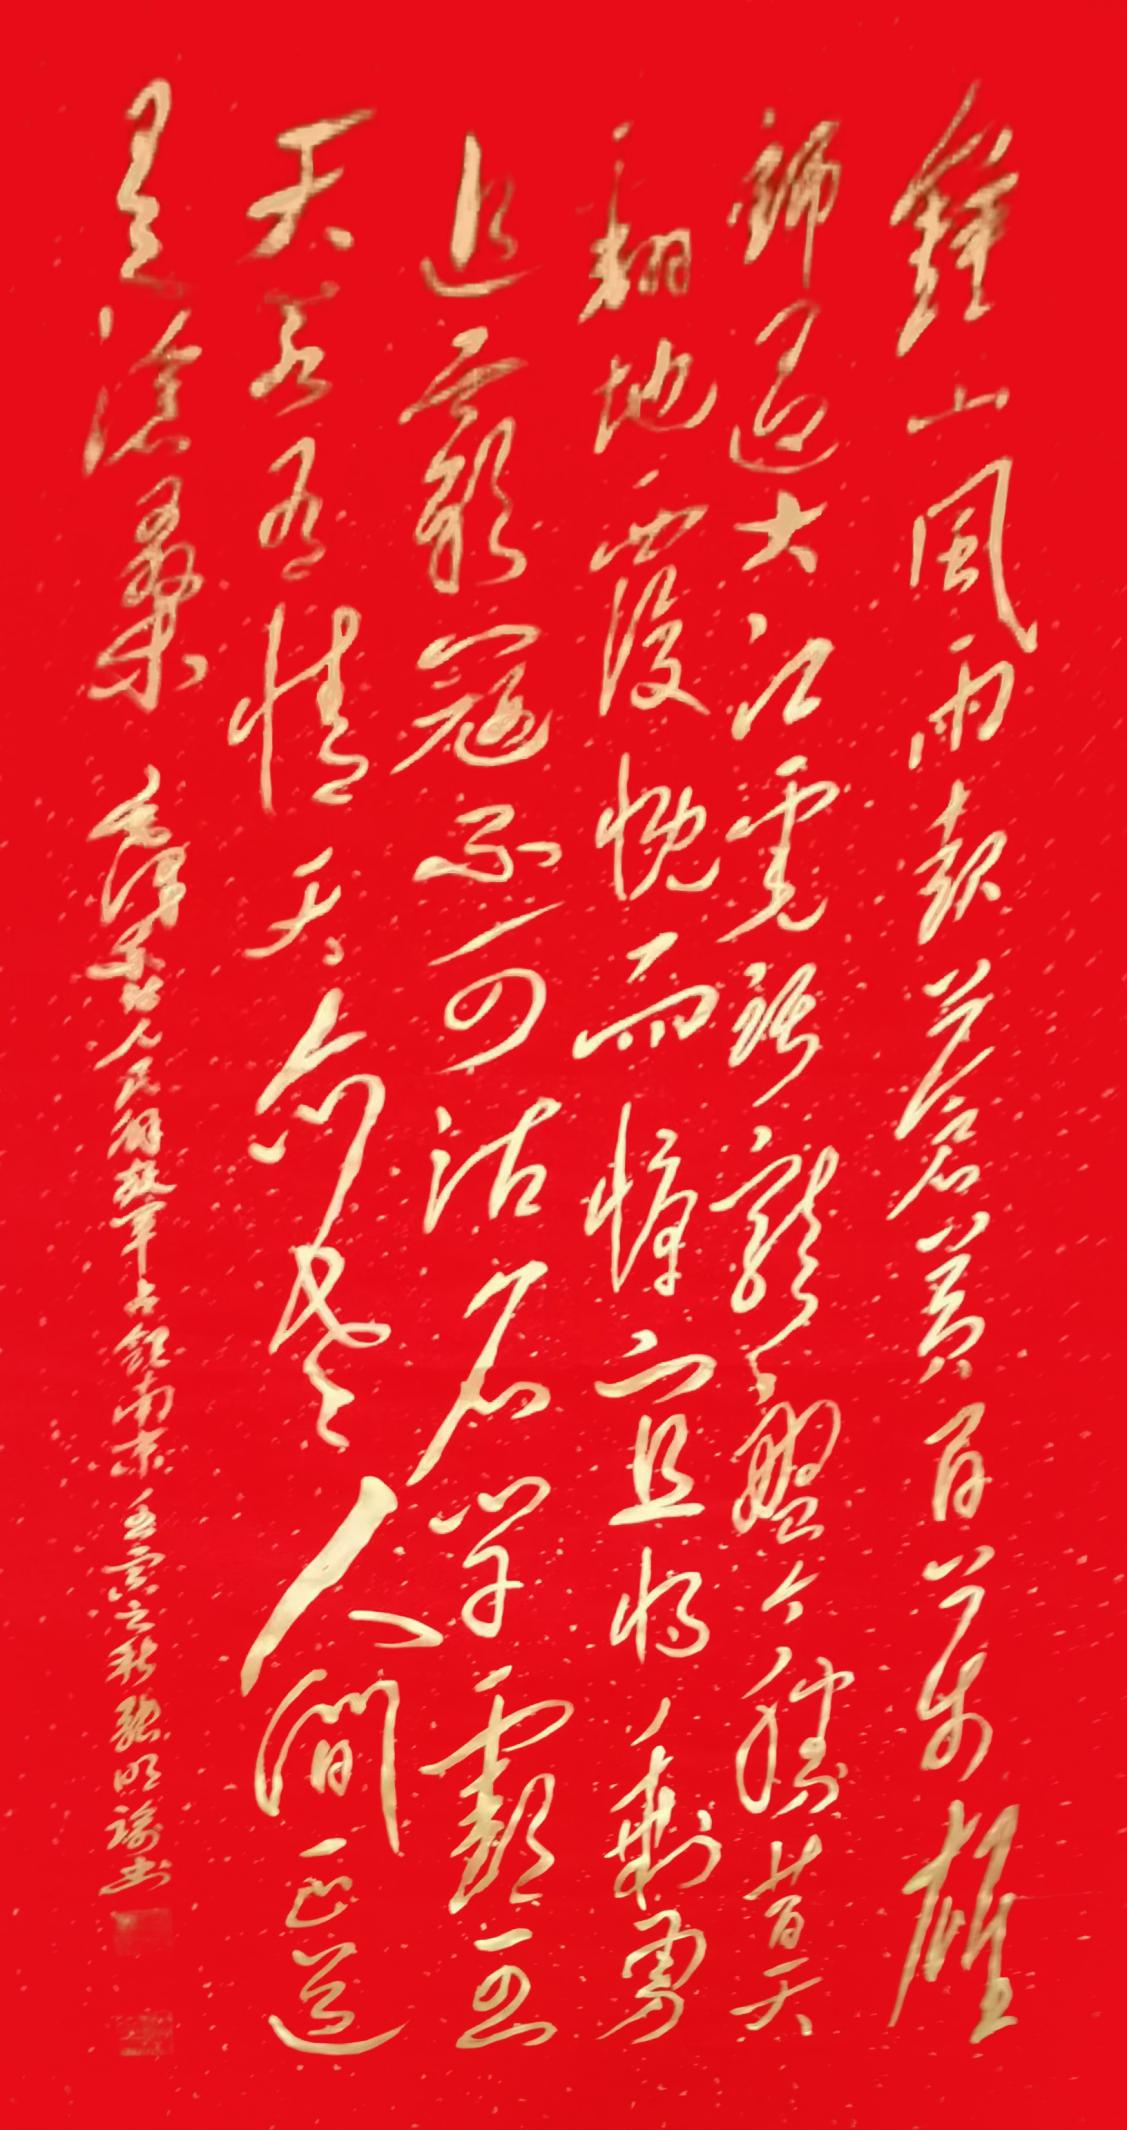 鍾山風雨起蒼黃百萬雄
師過大江虎踞龍盤今勝昔天
翻地覆慨而慷宜將剩勇
追窮寇不可沽名學霸王
天若有情天亦老人間正道
是滄桑
毛澤東詩人民解放軍占領南京 之秋 明 書